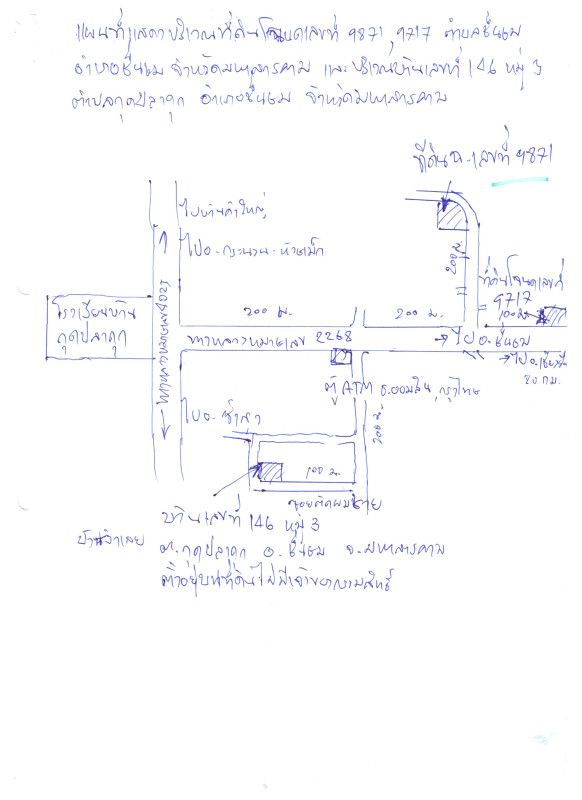 แผนที่แสดงบริเวณที่ดินโฉนดเลขที่ 9871, 9717 ตำบลชื่นชม
อำเภอชื่นชม จังหวัดมหาสารคาม และบริเวณบ้านเลขที่ 146 หมู่ 3
ตำบลกุดปลาดุก อำเภอชื่นชม จังหวัดมหาสารคาม
ที่ดินฉ.เลขที่ 9871
ไปบ้านคำใหญ่
ไปอ.กระนวน-ห้วยเม็ก
200 ม.
ที่ดินโฉนดเลขที่
9717
100 ม.
โรงเรียนบ้าน
กุดปลาดุก
ทางหลวงหมายเลข
200 ม.
200 ม.
ทางหลวงหมายเลข 2268
→ ไปอ.ชื่นชม
→ ไปอ.เชียงยืน
20 กม.
ตู้ ATM ธ.ออมสิน, กรุงไทย
ไปอ.
200 ม.
100 ม.
ซอยตัดผมชาย
บ้านเลขที่ 146 หมู่ 3
บ้านจำเลย
ต.กุดปลาดุก อ.ชื่นชม จ.มหาสารคาม
ตั้งอยู่บนที่ดินไม่มีเอกสารสิทธิ์